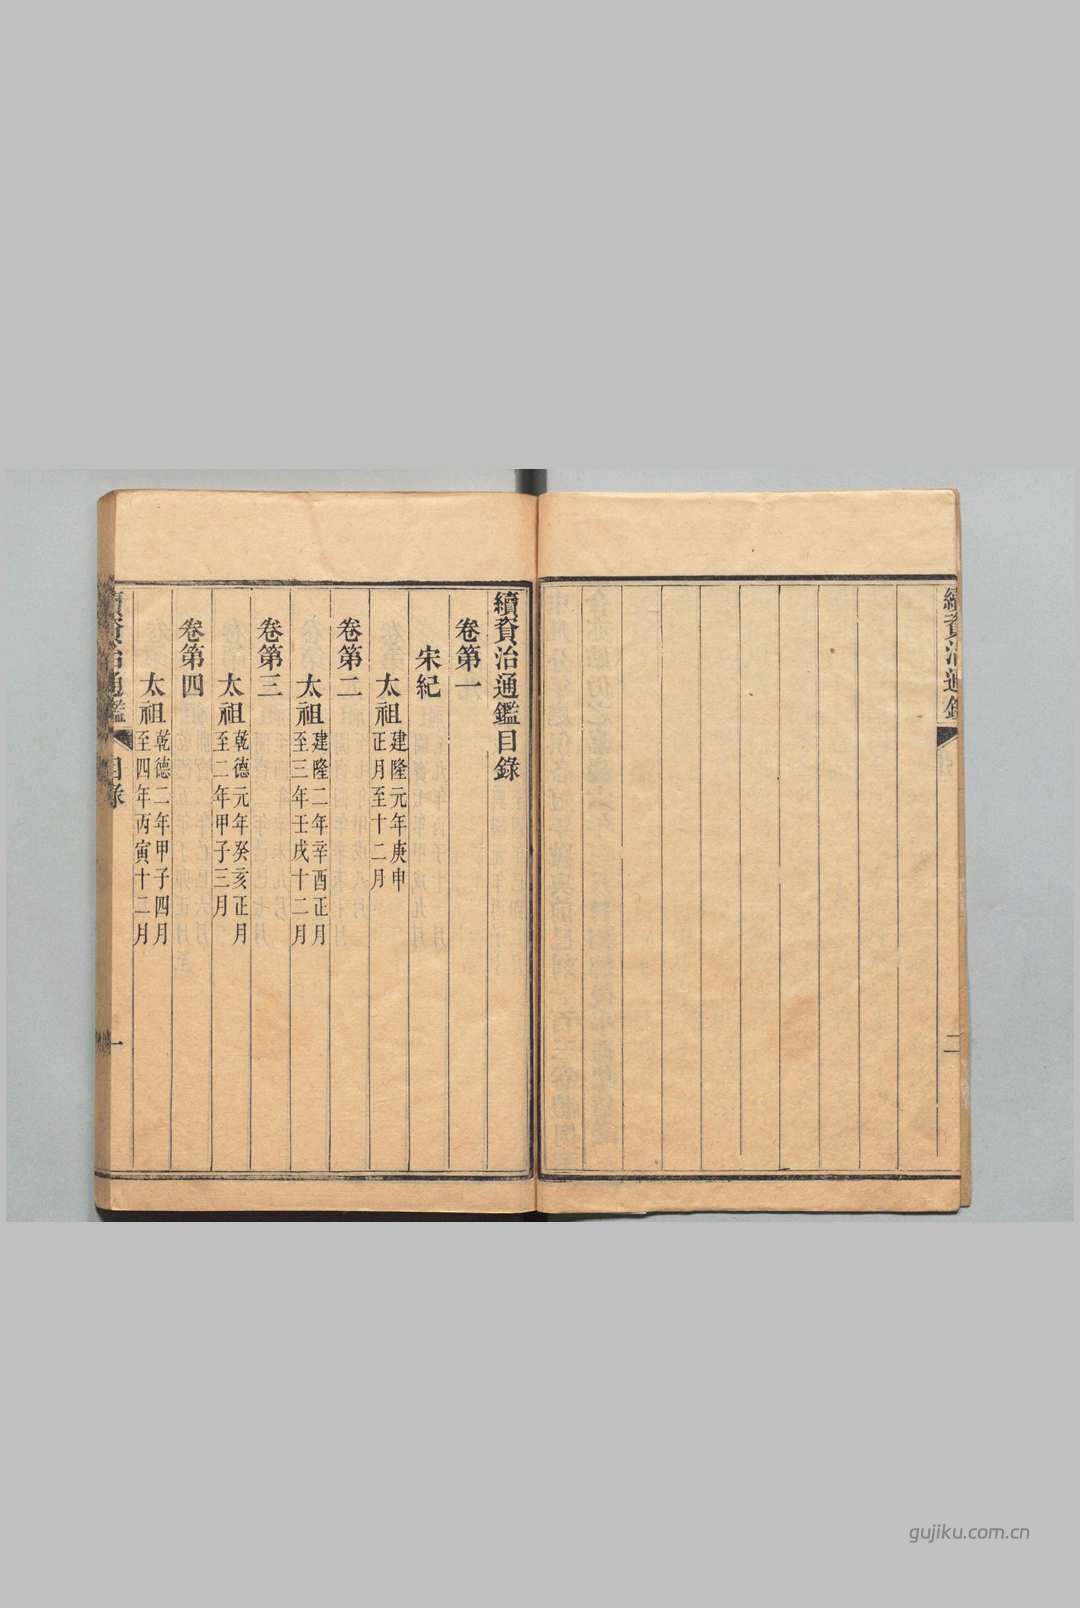 續資治通鑑
二
續資治通鑑目錄
卷第一
宋紀
太祖建隆元年庚申
正月至十二月
卷第二
太祖建隆二年辛酉正月
至三年壬戌十二月
卷第三
太祖乾德元年癸亥正月
至二年甲子三月
卷第四
太祖乾德二年甲子四月
至四年丙寅十二月
續資治通鑑
目錄
一
gujiku.com.cn